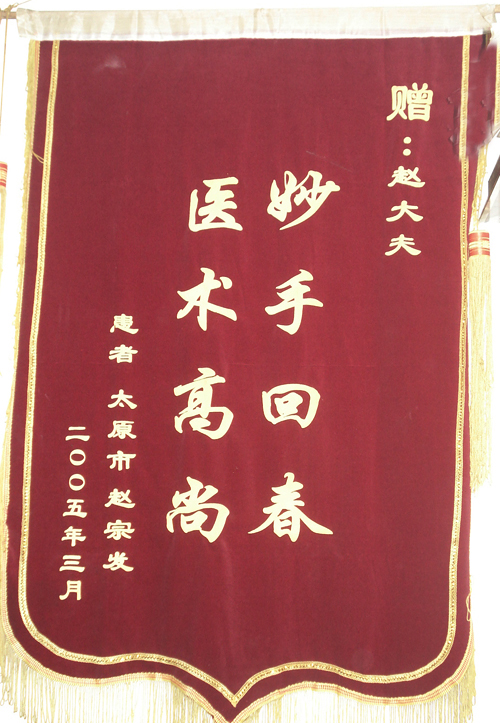 赠：赵大夫
妙手回春
医术高尚
患者 太原市赵宗发
二〇〇五年三月